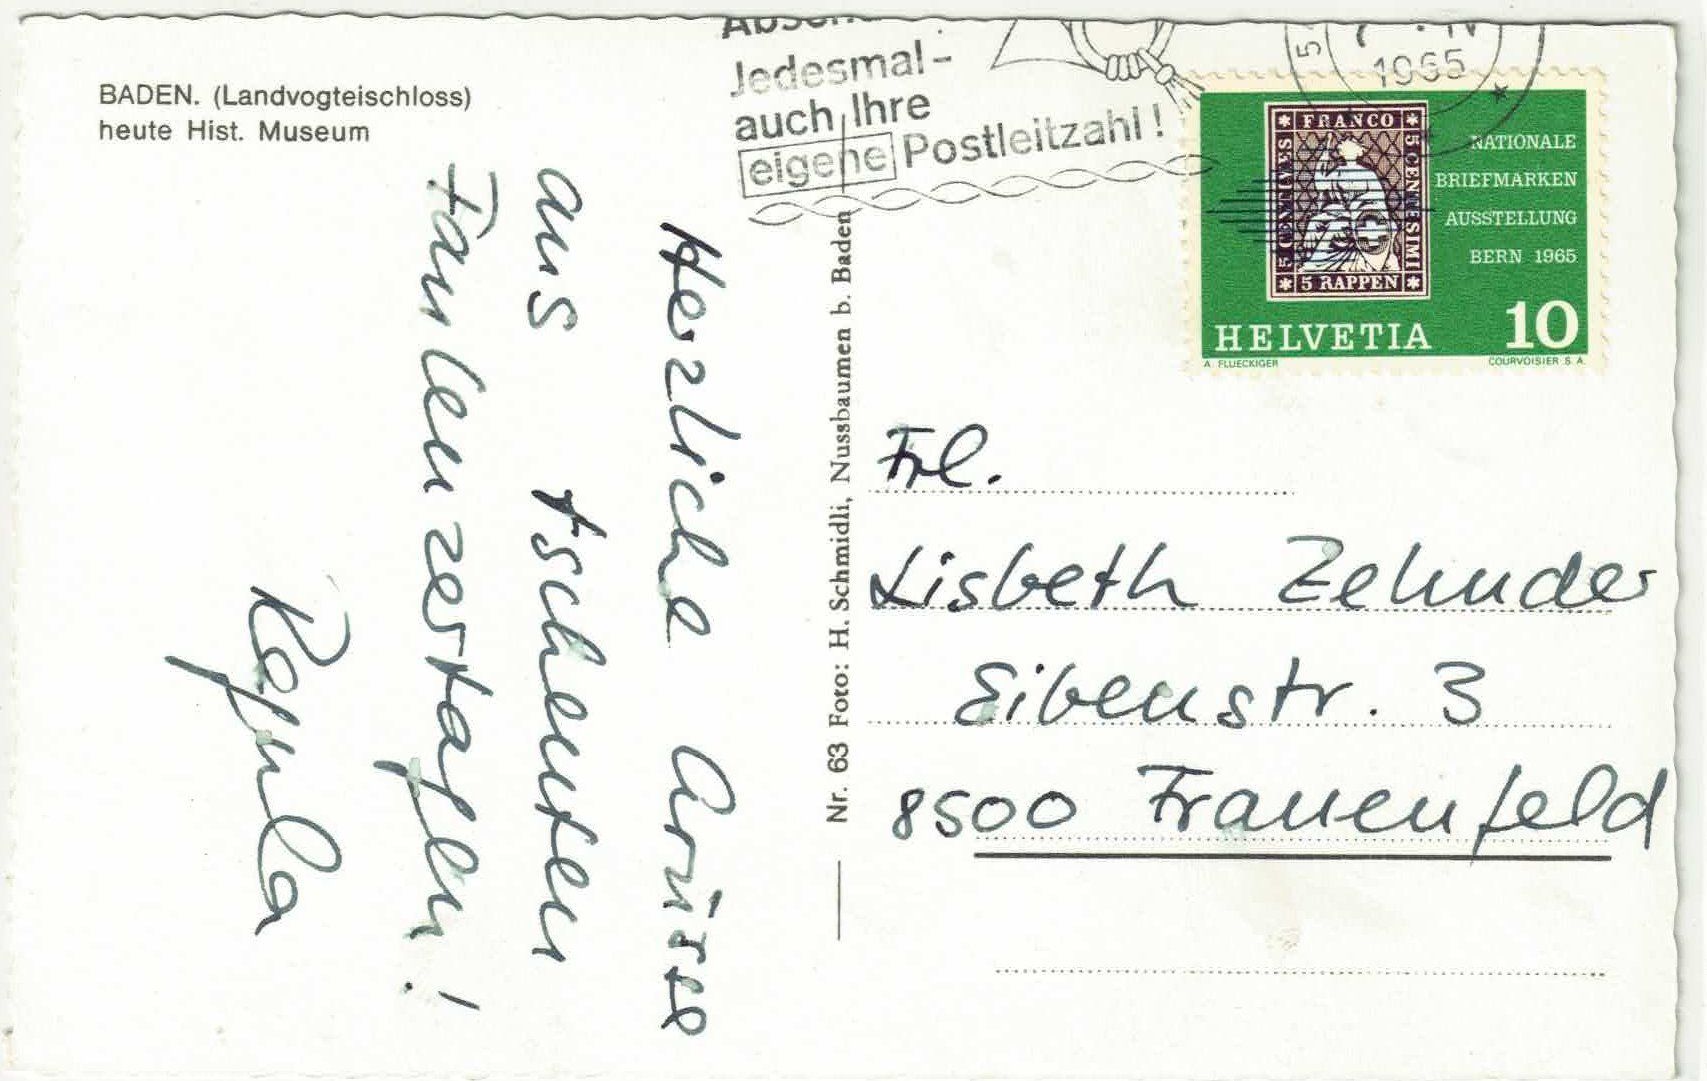 BADEN. (Landvogteischloss)
heute Hist. Museum
Herzliche Grüsse
aus
Faulenzertagen!
Regula
Nr. 63 Foto: H. Schmidli, Nussbaumen b. Baden
Jedesmal-
auch Ihre
eigene Postleitzahl!
1965
* FRANCO *
5 CENTIMES
5 CENTESIMI
* 5 RAPPEN *
NATIONALE
BRIEFMARKEN
AUSSTELLUNG
BERN 1965
HELVETIA 10
A. FLUECKIGER
COURVOISIER S.A.
Frl.
Lisbeth Zehnder
Eibenstr. 3
8500 Frauenfeld